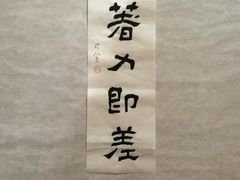 著力即差